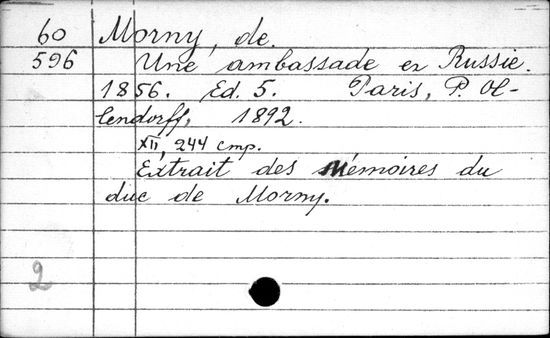 60 Morny, de.
596 Une ambassade en Russie.
1856. Ed. 5. Paris, P. Ol-
lendorff, 1892.
XII, 244 cmp.
Extrait des Mémoires du
duc de Morny.
2